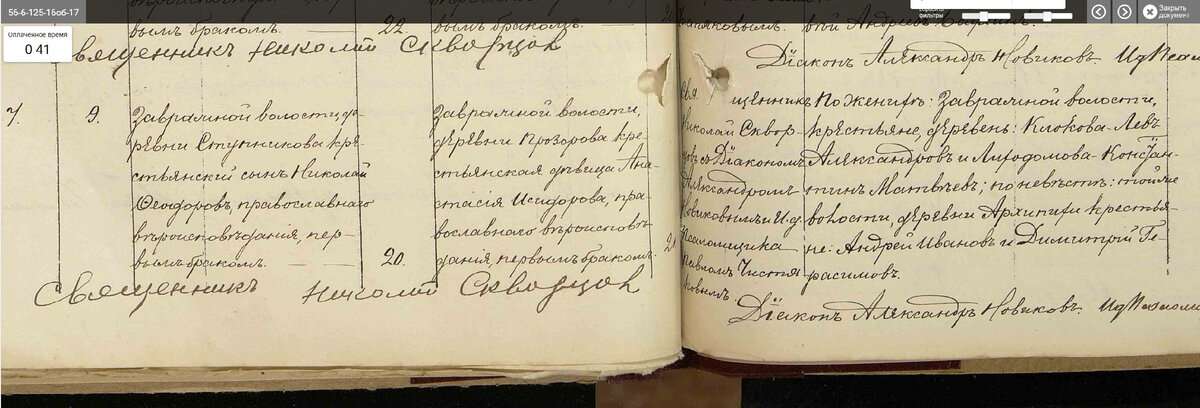 56-6-125-16об-17
Оплаченное время
0 41
фильтры
Закрыть
документ
вымъ бракомъ. 22. вымъ бракомъ.
Священникъ Николай Скворцов
Діаконъ Александръ Новиковъ.
7. 9.
Завражной волости, де-
ревни Ступникова кре-
стьянскій сынъ Николай
Ѳеодоровъ, православнаго
вѣроисповѣданія, пер-
вымъ бракомъ. 20.
Завражной волости,
деревни Прозорова кре-
стьянская дѣвица Ана-
стасія Исидорова, пра-
вославнаго вѣроисповѣ-
данія, первымъ бракомъ.
Священникъ Николай Скворцов
щенникъ
Николай Сквор-
цовъ съ Діакономъ
Александромъ
Новиковымъ и И.д.
Псаломщика
Павломъ Чистя-
ковымъ.
По женихѣ: Завражной волости,
крестьяне, деревень: Клокова - Левъ
Александровъ и Лиходомова - Констан-
тинъ Матвѣевъ; по невѣстѣ: той же
волости, деревни Архипихи крестья-
не: Андрей Ивановъ и Димитрій Ге-
расимовъ.
Діаконъ Александръ Новиковъ.